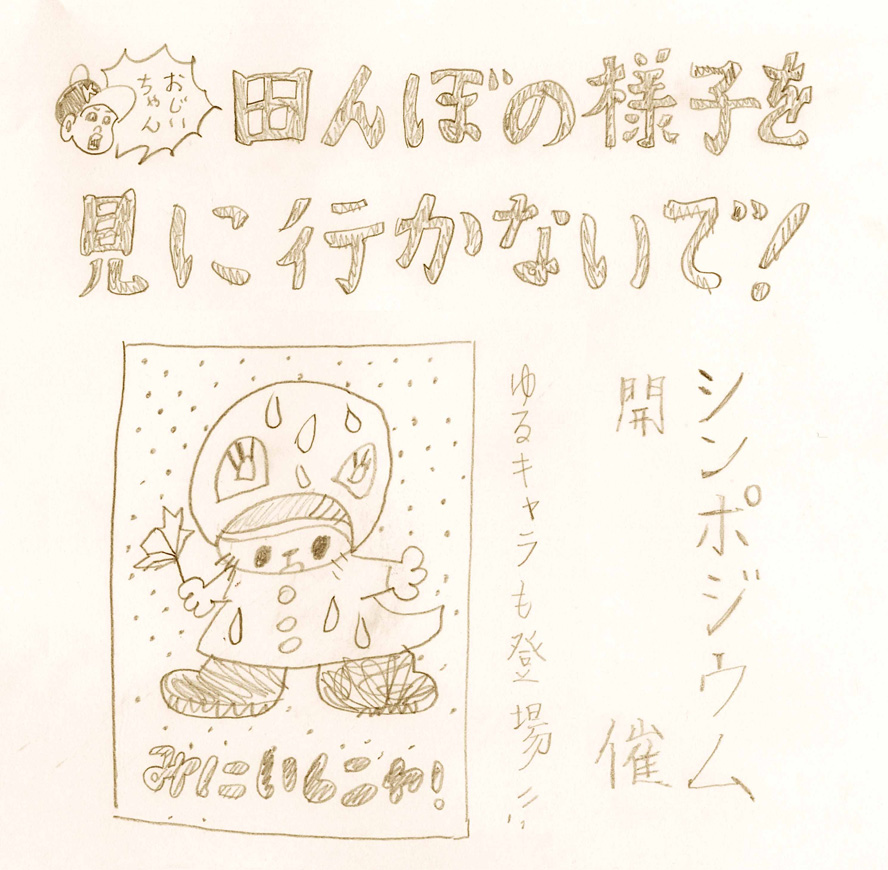 おじい
ちゃん
田んぼの様子を
見に行かないで!
シンポジウム
開催
ゆるキャラも登場!!
みにい